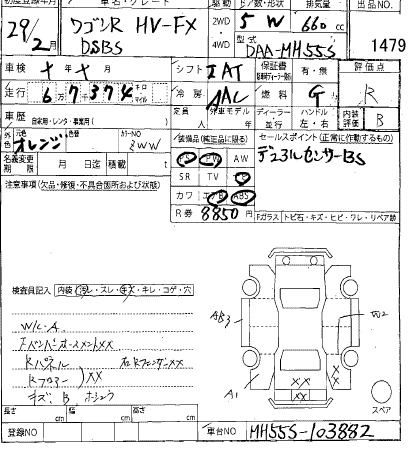 初度登録年月 車名・グレード 駆動 ドア数・形状 排気量 出品NO.
29/2月 ワゴンR HV-FX DSBS 2WD 4WD 5 W 660 cc
型式 DAA-MH55S 1479
車検 年 月 シフト IAT 保証書 有・無 評価点
走行 67374 キロ マイル 冷房 AAC 燃料 G R
車歴 自家用・レンタ・事業用( ) 定員 外車モデル ディーラー 並行 ハンドル 左・右 内装評価 B
外色 オレンジ カラーNO ZWW 装備品(純正品に限る) セールスポイント(正常に作動するもの)
名義変更期限 月 日迄 積載 t PW AW デュアルセンサーBS
注意事項(欠品・修復・不具合箇所および状態) SR TV
カワ エアB ABS
R券 8850 円 Fガラス トビ石・キズ・ヒビ・ワレ・リペア跡
検査員記入 内装 汚レ・スレ・キズ・キレ・コゲ・穴
AB3 W2
W/C・A
Rパネル 右RフェンダーXX
Rフロアー XX A1 XX
キズ、B スペア
長さ cm 幅 cm 高さ cm
登録NO 車台NO MH55S-103882